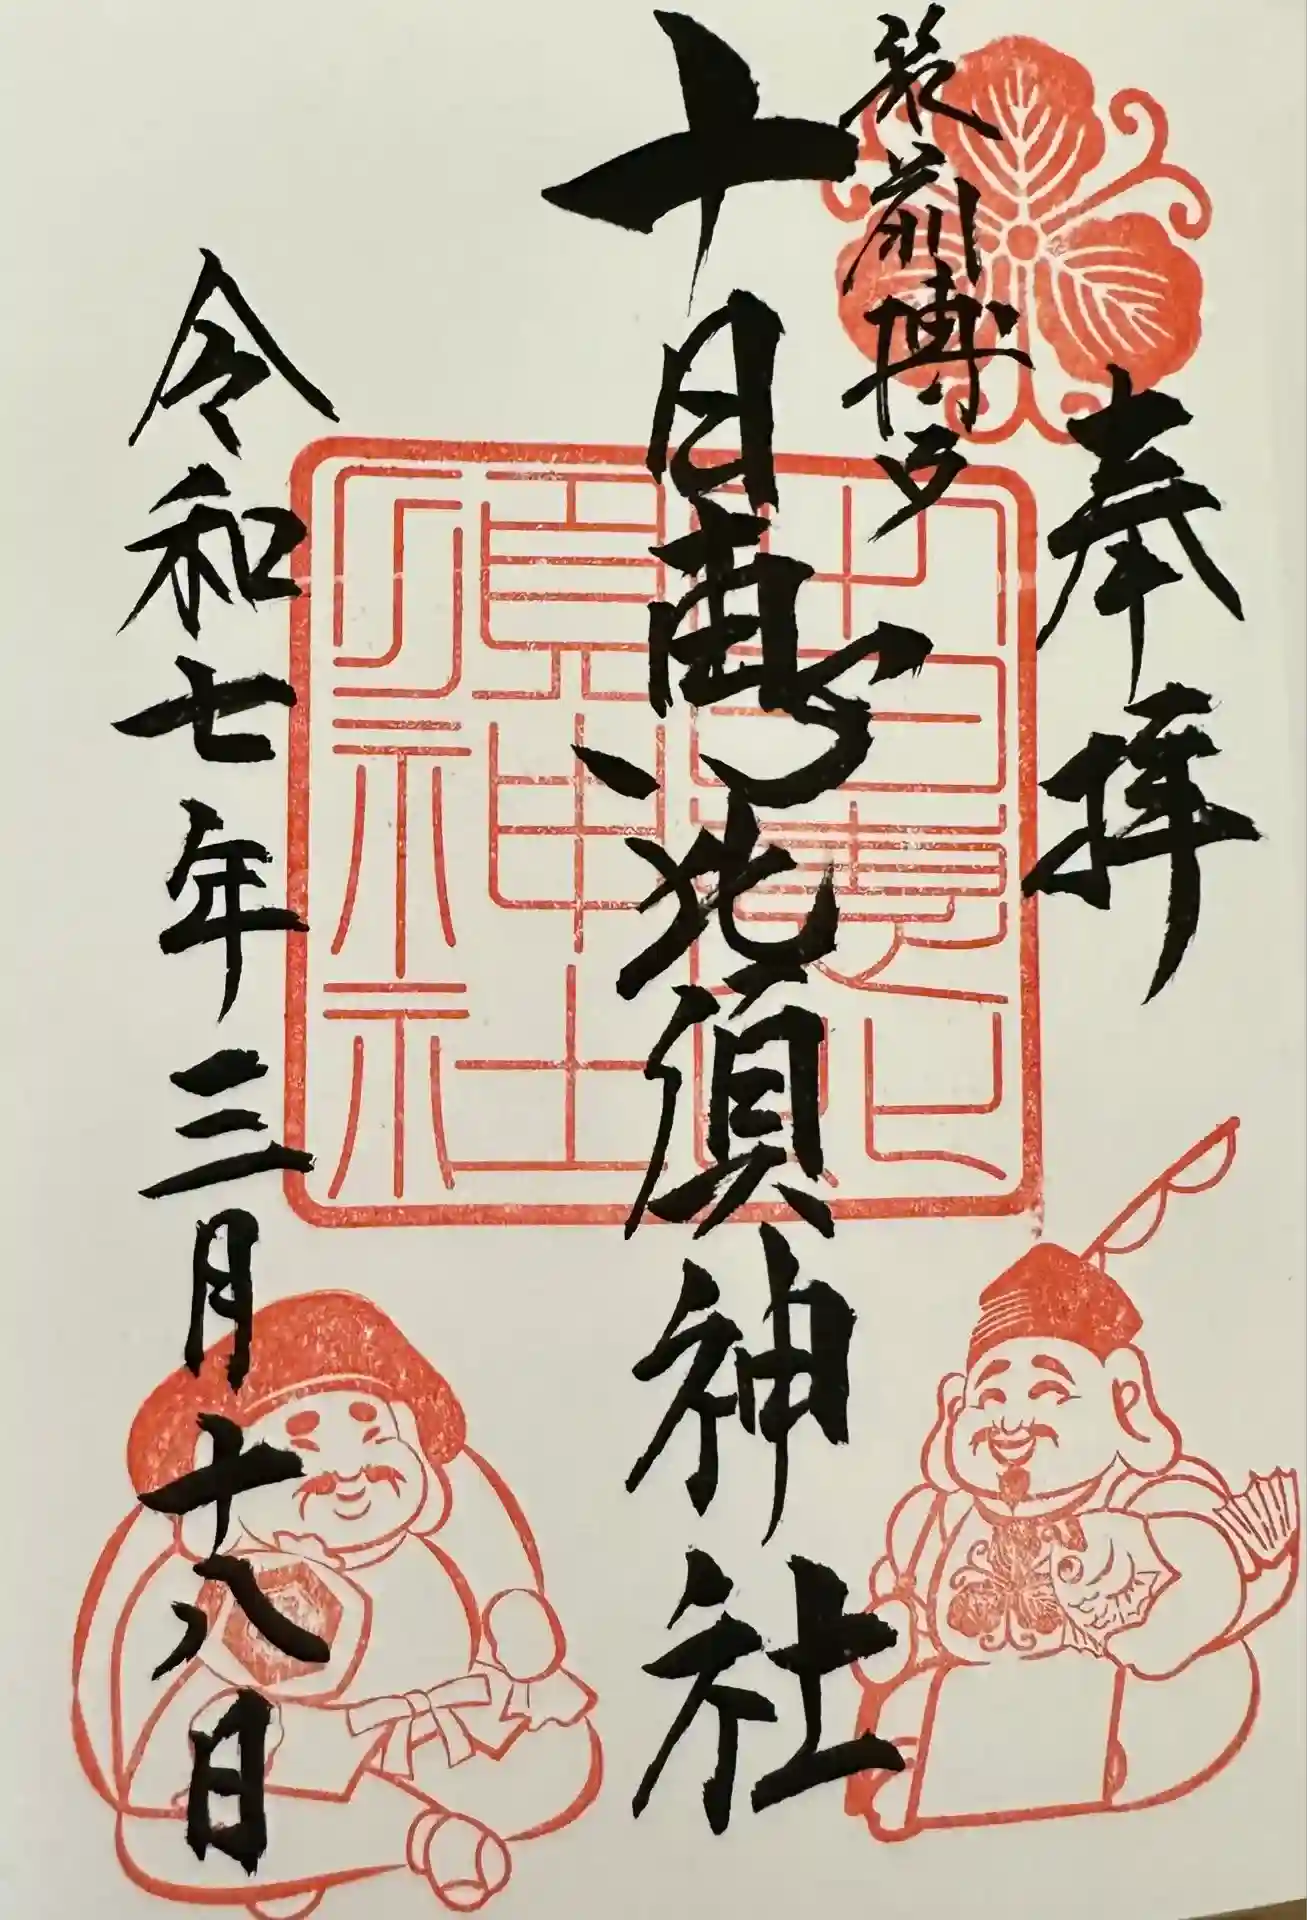 奉拝
筑前博多
十日恵比須神社
令和七年三月十八日
十日恵比須神社